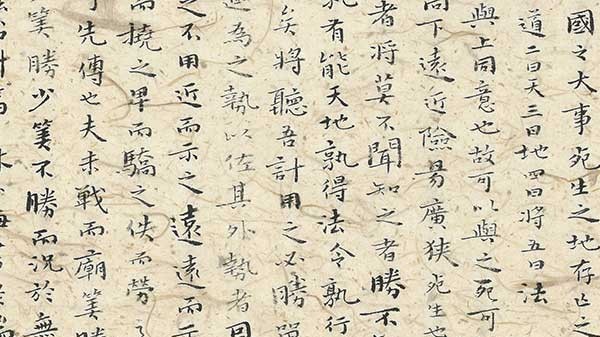 國之大事死生之地存亡之
道二曰天三曰地四曰將五曰法
與上同意也故可以與之死可
下遠近險易廣狹死生也
者將莫不聞知之者勝不
孰有能天地孰得法令孰行
矣將聽吾計用之必勝留
為之勢以佐其外勢者因
之不用近而示之遠遠而示
而撓之卑而驕之佚而勞
先傳也夫未戰而廟筭勝
筭勝少筭不勝而況於無